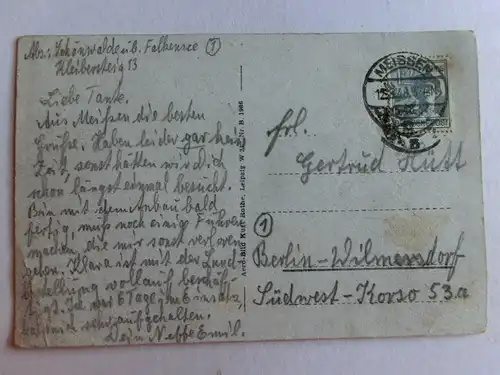 Abs: Schönwalde üb. Falkensee (1)
Kleibersteig 13
Liebe Tante.
Aus Meissen die besten
Grüsse. Haben leider gar kein
Zeit, sonst hätten wir dich
schon längst einmal besucht.
Bin mit bald
fertig, muss noch einig Fuhren
machen, die mir sonst verloren
gehen. Klara ist mit der
bestellung vollauf beschäf-
tigt. 6 Tage im Einsatz,
hat mich sehr aufgehalten.
Dein Neffe Emil.
Aero-Bild Kurt Rothe, Leipzig W Nr. B. 1966
MEISSEN
Frl.
Gertrud Hütt
(1)
Berlin-Wilmersdorf
Südwest-Korso 53.a